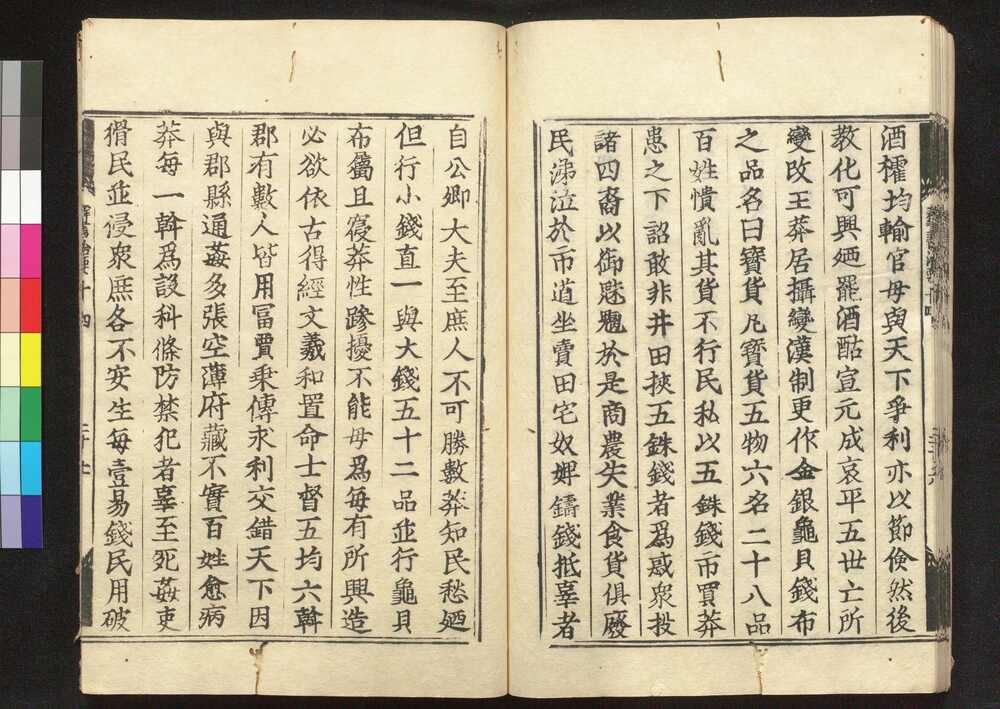 酒榷均輸官毋與天下爭利亦以節儉然後
教化可興廼罷酒酤宣元成哀平五世亡所
變改王莽居攝變漢制更作金銀龜貝錢布
之品名曰寶貨凡寶貨五物六名二十八品
百姓憒亂其貨不行民私以五銖錢市買莽
患之下詔敢非井田挾五銖錢者爲惑衆投
諸四裔以御魑魅於是商農失業食貨俱廢
民涕泣於市道坐賣田宅奴婢鑄錢抵辠者
自公卿大夫至庶人不可勝數莽知民愁廼
但行小錢直一與大錢五十二品並行龜貝
布屬且寑莽性躁擾不能毋爲每有所興造
必欲依古得經文羲和置命士督五均六斡
郡有數人皆用富賈乘傳求利交錯天下因
與郡縣通姦多張空薄府藏不實百姓愈病
莽每一斡爲設科條防禁犯者辠至死姦吏
猾民並侵衆庶各不安生每壹易錢民用破
十四
二十七